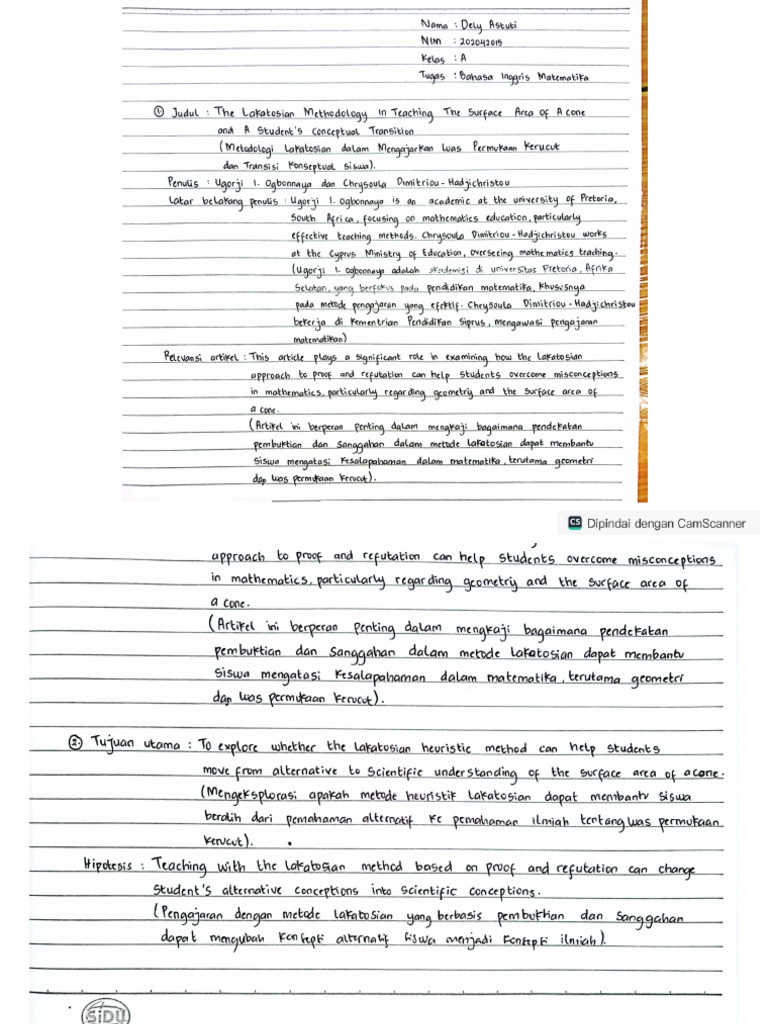 Nama : Dely Astuti
NIM : 202042015
Kelas : A
Tugas : Bahasa Inggris Matematika
① Judul : The Lakatosian Methodology in Teaching The Surface Area of A cone
and A Student's Conceptual Transition
(Metodologi Lakatosian dalam Mengajarkan Luas Permukaan Kerucut
dan Transisi Konseptual Siswa).
Penulis : Ugorji I. Ogbonnaya dan Chrysoula Dimitriou-Hadjichristou
Latar belakang penulis : Ugorji I. Ogbonnaya is an academic at the university of Pretoria,
South Africa, focusing on mathematics education, particularly
effective teaching methods. Chrysoula Dimitriou-Hadjichristou works
at the Cyprus Ministry of Education, overseeing mathematics teaching.
(Ugorji I. Ogbonnaya adalah akademisi di universitas Pretoria, Afrika
Selatan, yang berfokus pada pendidikan matematika, khususnya
pada metode pengajaran yang efektif. Chrysoula Dimitriou-Hadjichristou
bekerja di Kementrian Pendidikan Siprus, mengawasi pengajaran
matematikan)
Relevansi artikel : This article plays a significant role in examining how the Lakatosian
approach to proof and refutation can help students overcome misconceptions
in mathematics, particularly regarding geometry and the surface area of
a cone.
(Artikel ini berperan penting dalam mengkaji bagaimana pendekatan
pembuktian dan sanggahan dalam metode Lakatosian dapat membantu
siswa mengatasi kesalapahaman dalam matematika, terutama geometri
dan luas permukaan kerucut).
CS Dipindai dengan CamScanner
approach to proof and refutation can help students overcome misconceptions
in mathematics, particularly regarding geometry and the surface area of
a cone.
(Artikel ini berperan penting dalam mengkaji bagaimana pendekatan
pembuktian dan sanggahan dalam metode Lakatosian dapat membantu
siswa mengatasi kesalapahaman dalam matematika, terutama geometri
dan luas permukaan kerucut).
② Tujuan utama : To explore whether the Lakatosian heuristic method can help students
move from alternative to scientific understanding of the surface area of a cone.
(Mengeksplorasi apakah metode heuristik Lakatosian dapat membantu siswa
beralih dari pemahaman alternatif ke pemahaman ilmiah tentang luas permukaan
kerucut).
Hipotesis : Teaching with the Lakatosian method based on proof and refutation can change
student's alternative conceptions into scientific conceptions.
(Pengajaran dengan metode Lakatosian yang berbasis pembuktian dan sanggahan
dapat mengubah konsepsi alternatif siswa menjadi konsepsi ilmiah).
SiDU